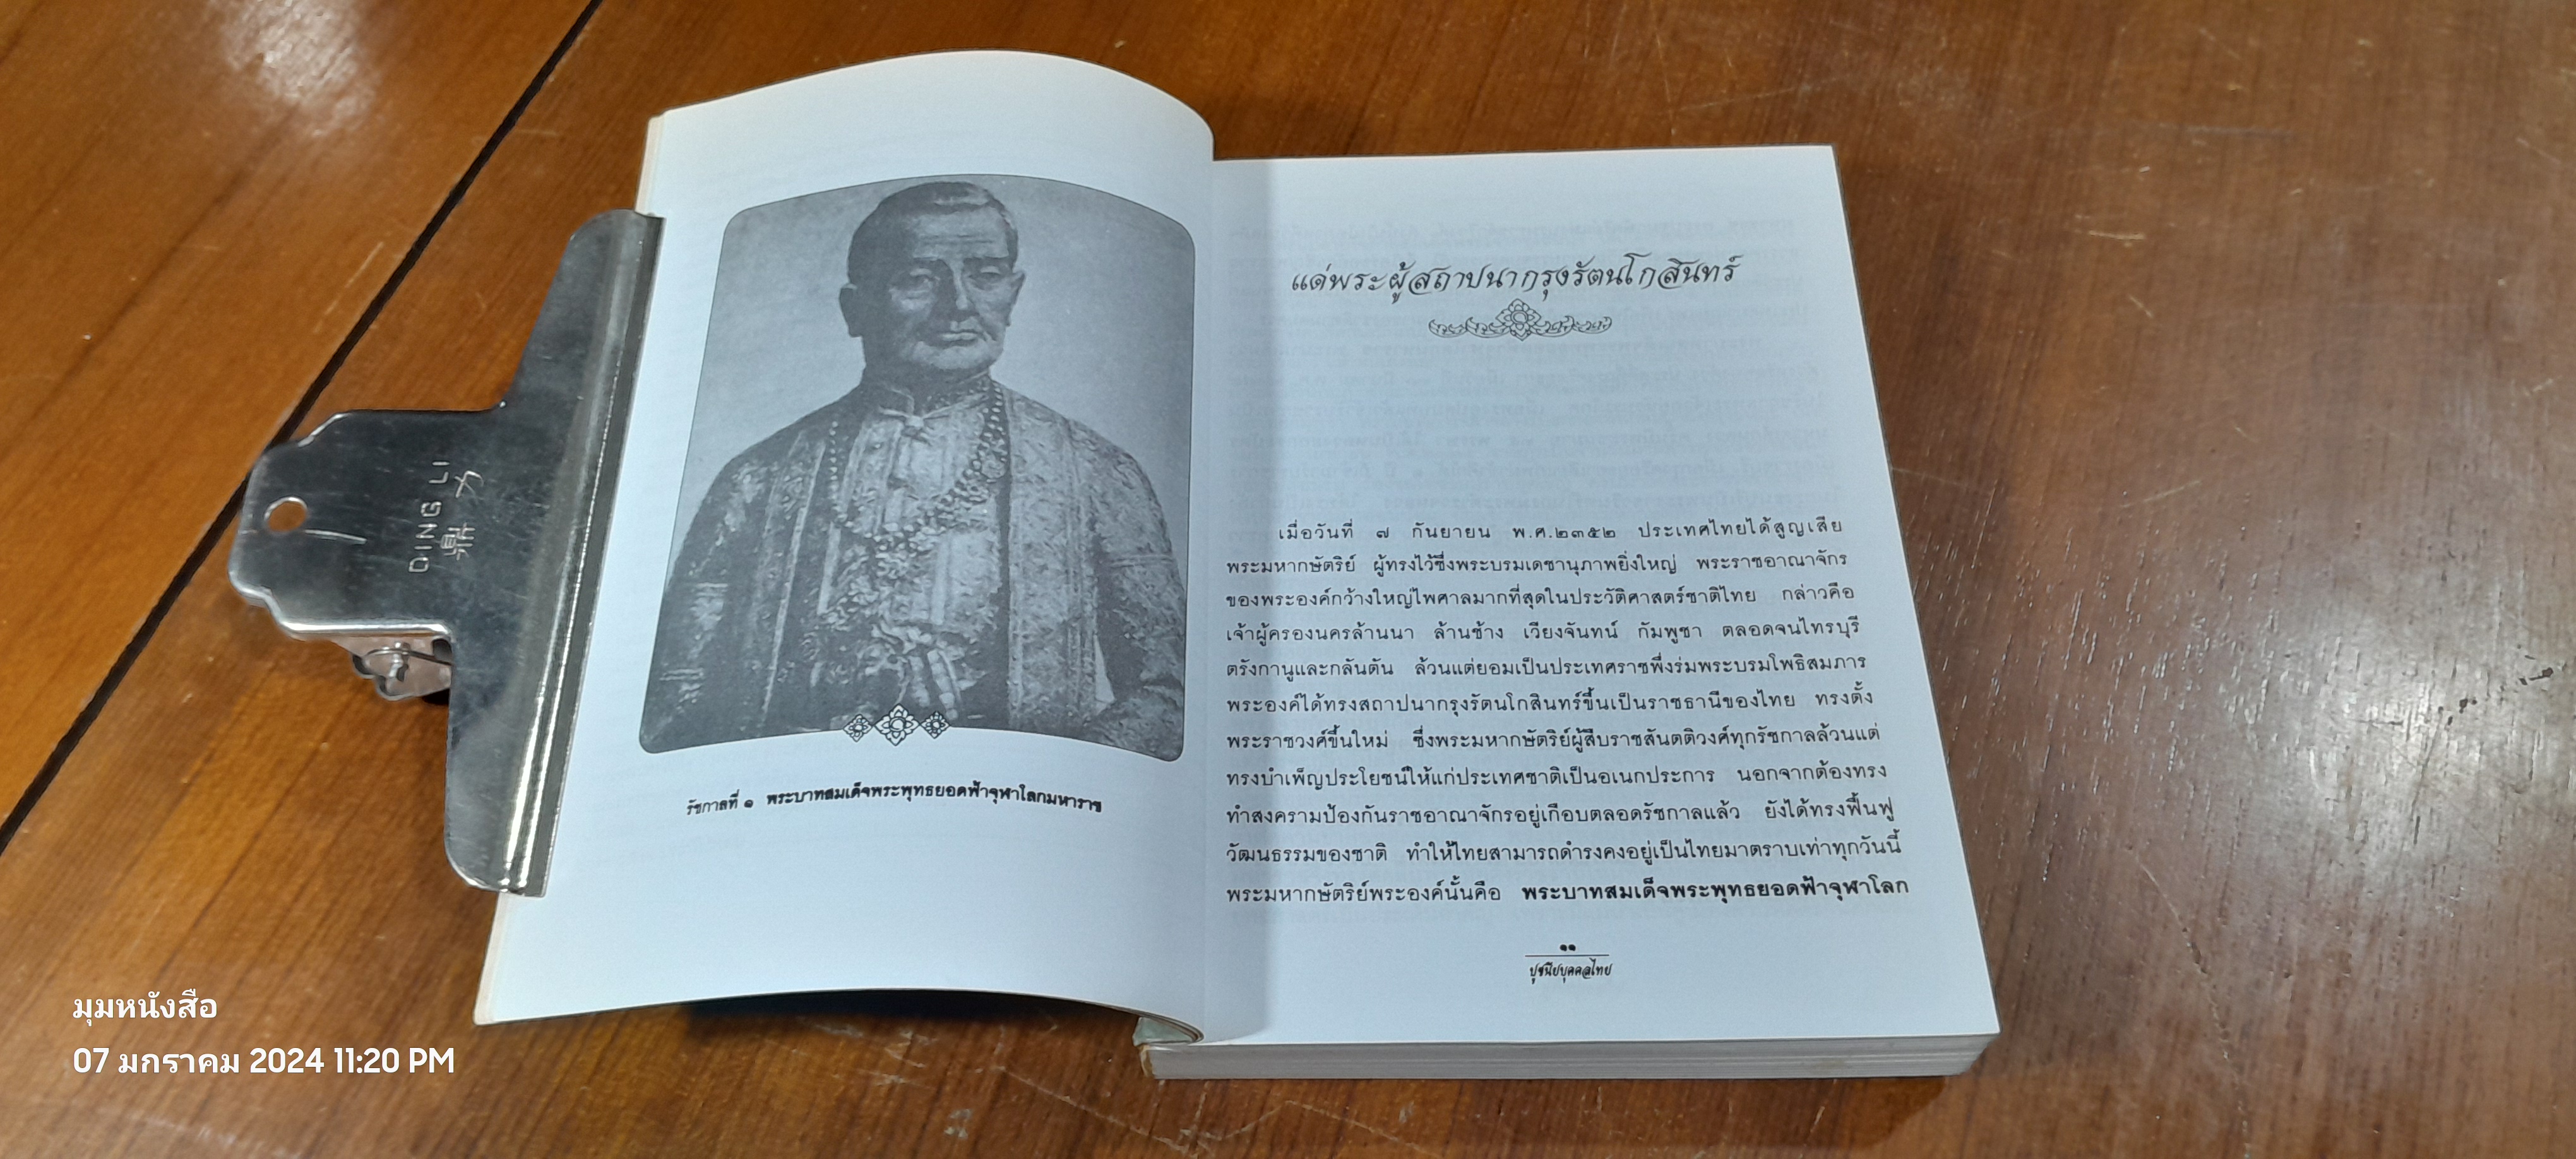 DING LI
鼎力
รัชกาลที่ ๑ พระบาทสมเด็จพระพุทธยอดฟ้าจุฬาโลกมหาราช
แด่พระผู้สถาปนากรุงรัตนโกสินทร์
เมื่อวันที่ ๗ กันยายน พ.ศ.๒๓๕๒ ประเทศไทยได้สูญเสีย
พระมหากษัตริย์ ผู้ทรงไว้ซึ่งพระบรมเดชานุภาพยิ่งใหญ่ พระราชอาณาจักร
ของพระองค์กว้างใหญ่ไพศาลมากที่สุดในประวัติศาสตร์ชาติไทย กล่าวคือ
เจ้าผู้ครองนครล้านนา ล้านช้าง เวียงจันทน์ กัมพูชา ตลอดจนไทรบุรี
ตรังกานูและกลันตัน ล้วนแต่ยอมเป็นประเทศราชพึ่งร่มพระบรมโพธิสมภาร
พระองค์ได้ทรงสถาปนากรุงรัตนโกสินทร์ขึ้นเป็นราชธานีของไทย ทรงตั้ง
พระราชวงศ์ขึ้นใหม่ ซึ่งพระมหากษัตริย์ผู้สืบราชสันตติวงศ์ทุกรัชกาลล้วนแต่
ทรงบำเพ็ญประโยชน์ให้แก่ประเทศชาติเป็นอเนกประการ นอกจากต้องทรง
ทำสงครามป้องกันราชอาณาจักรอยู่เกือบตลอดรัชกาลแล้ว ยังได้ทรงฟื้นฟู
วัฒนธรรมของชาติ ทำให้ไทยสามารถดำรงคงอยู่เป็นไทยมาตราบเท่าทุกวันนี้
พระมหากษัตริย์พระองค์นั้นคือ พระบาทสมเด็จพระพุทธยอดฟ้าจุฬาโลก
๑๑
ปูชนียบุคคลไทย
มุมหนังสือ
07 มกราคม 2024 11:20 PM